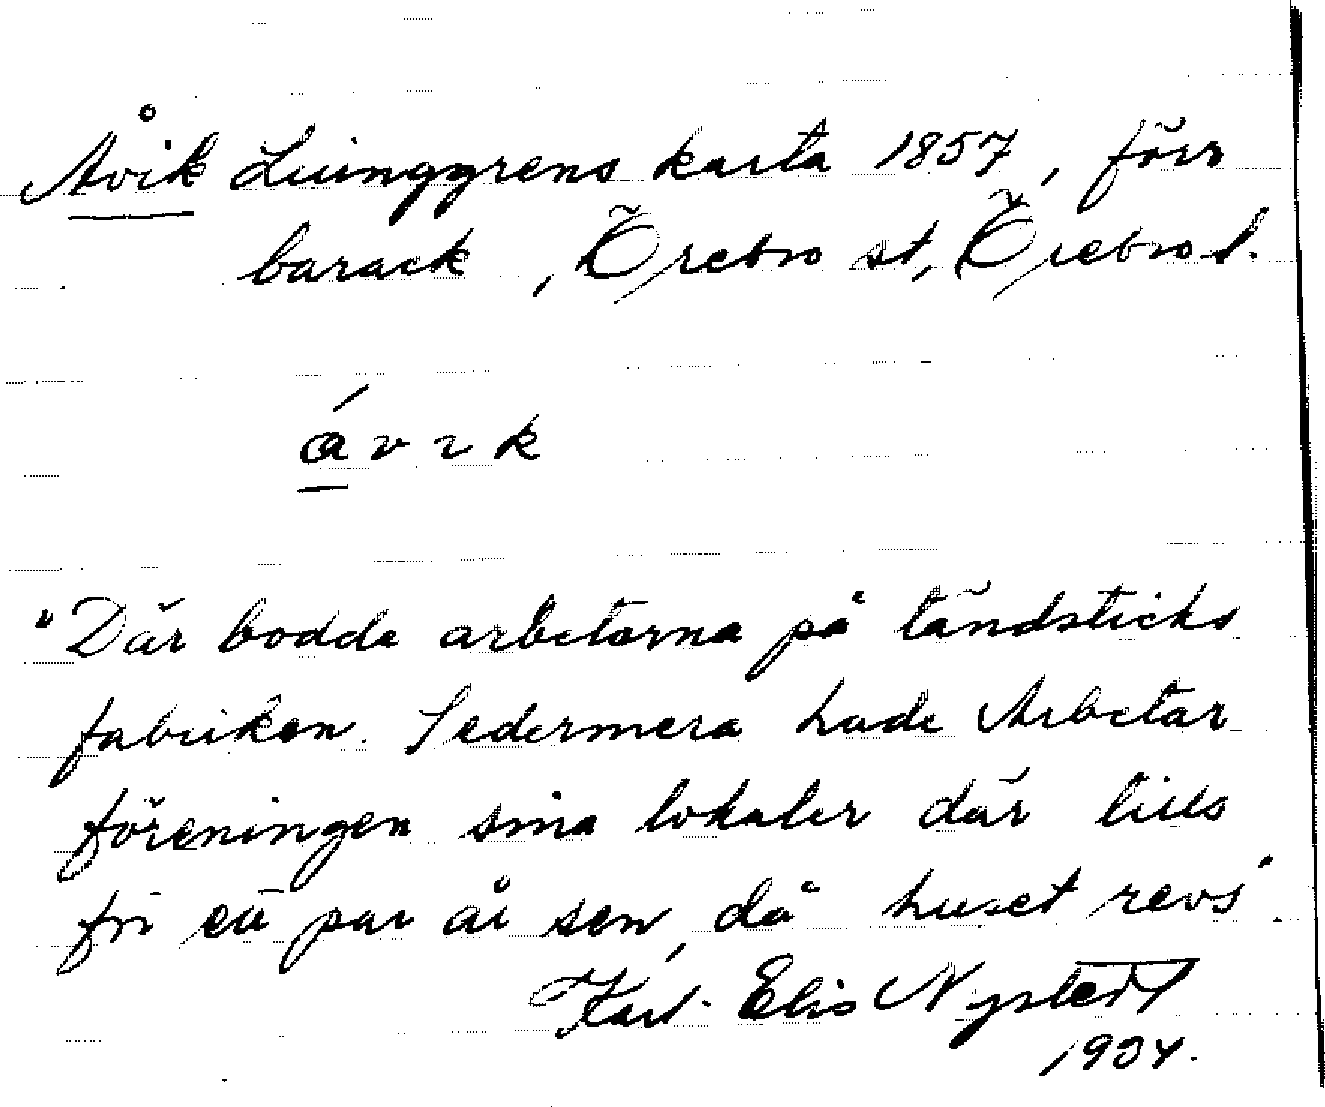 Åvik Ljunggrens karta 1857, förr
barack, Örebro st, Örebro l.
á v ı k
"Där bodde arbetarna på tändsticks
fabriken. Sedermera hade Arbetar
föreningen sina lokaler där tills
för ett par år sen, då huset revs".
Karl-Elis Nystedt
1934.